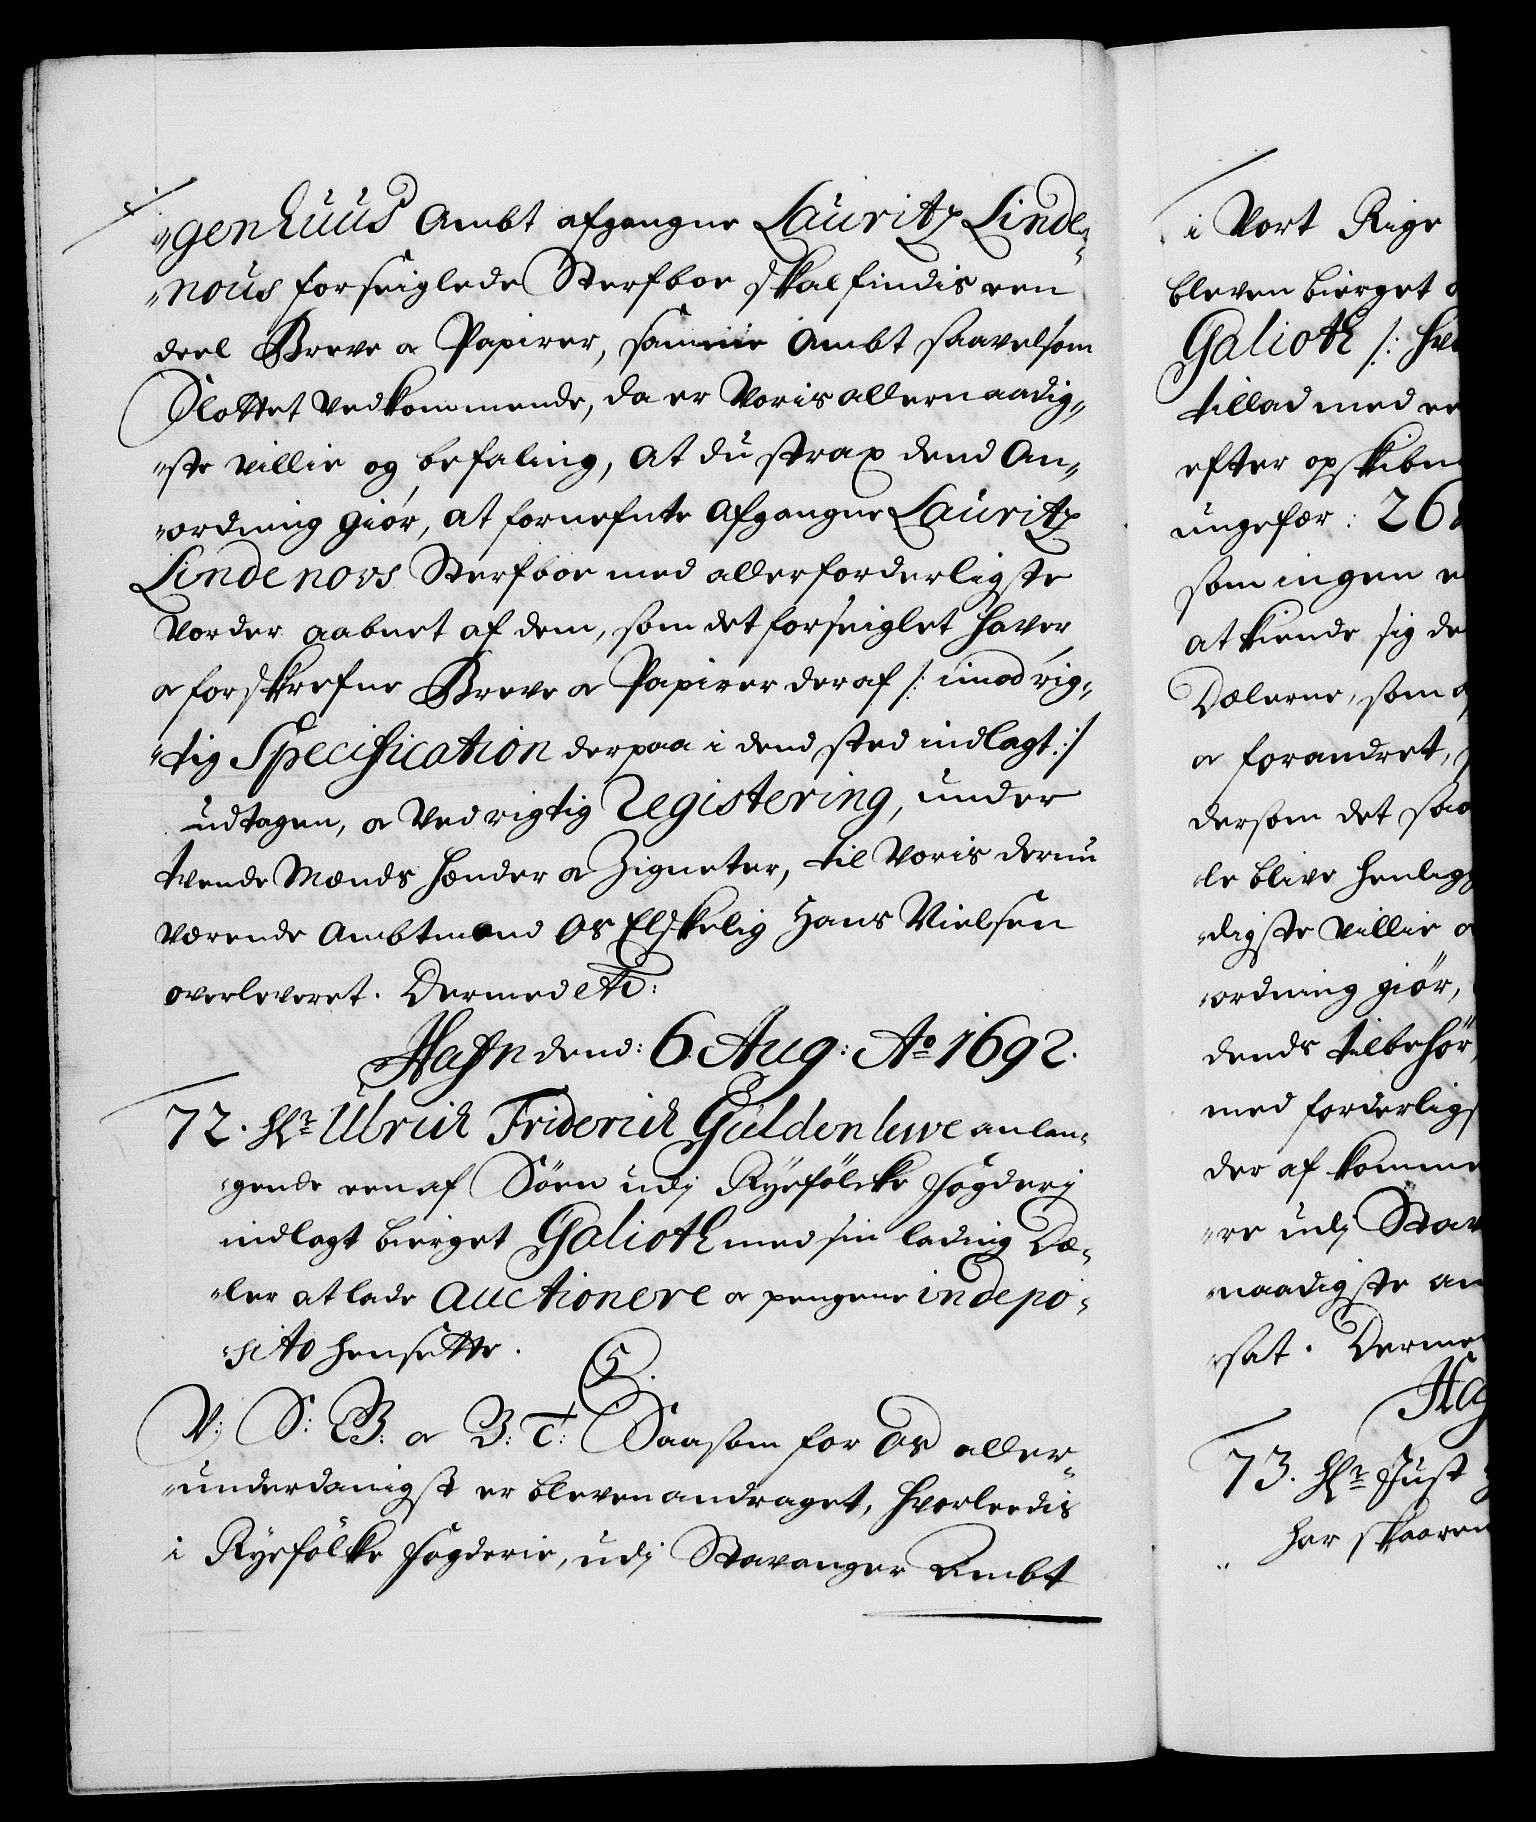 "genhuus Ambt afgangne Lauritz Linde"
"nous forseiglede Sterfboe skal findis een
deel Breve a Papirer, samme Ambt saavelsom
Slottet Vedkommende, da er Voris allernaadig"
"ste villie og befaling, at du strax dend An"
"ordning giör, at fornefnte Afgangne Lauritz
Lindenovs Sterfboe med allerforderligste
vorder aabnet af dem, som det forseiglet haver,
a forskrefne Breve a Papirer deraf /: imod rig"
"tig Specification derpaa i dend sted indlagt :/
udtagen, a Ved rigtig Registering, under
tvende Mænds hænder a Zigneter, til Voris dernu
værende Ambtmand Os Elskelig Hans Nielsen
overleveret. Dermed etc:
Hafn dend: 6. Aug: Ao 1692.
72. Hr Ulrich Friderich Güldenlewe anlan"
"gende een af Söen udj Ryefölcke fogderj
indlagt bierget Galioth med sin lading Dæ"
"ler at lade Auctionere a pengene in depo"
"sito hensette.
C5.
V: S: B: a B: T: Saasom for Os aller"
"underdanigst er bleven andraget, hvorleedis
i Ryefölke fogderie, udj Stavanger Ambt
i Vort Rige
bleven bierget
Galioth /:
tillad med
efter opskibn
ungefær: 26
som ingen
at kiende sig de
Dælerne, som
a forandret,
dersom det saa
le blive henligg
"digste villie
"ordning giör,
dends tilbehör,
med forderligs
der af komme
"re udj Stav
"naadigste an
"sat. Derme
Haf
73. Hr Just
har skaaren